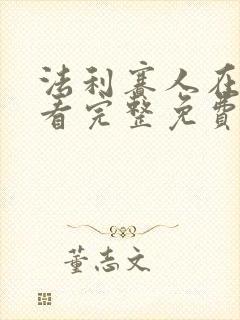 法利赛人在
看完整免费
董志文